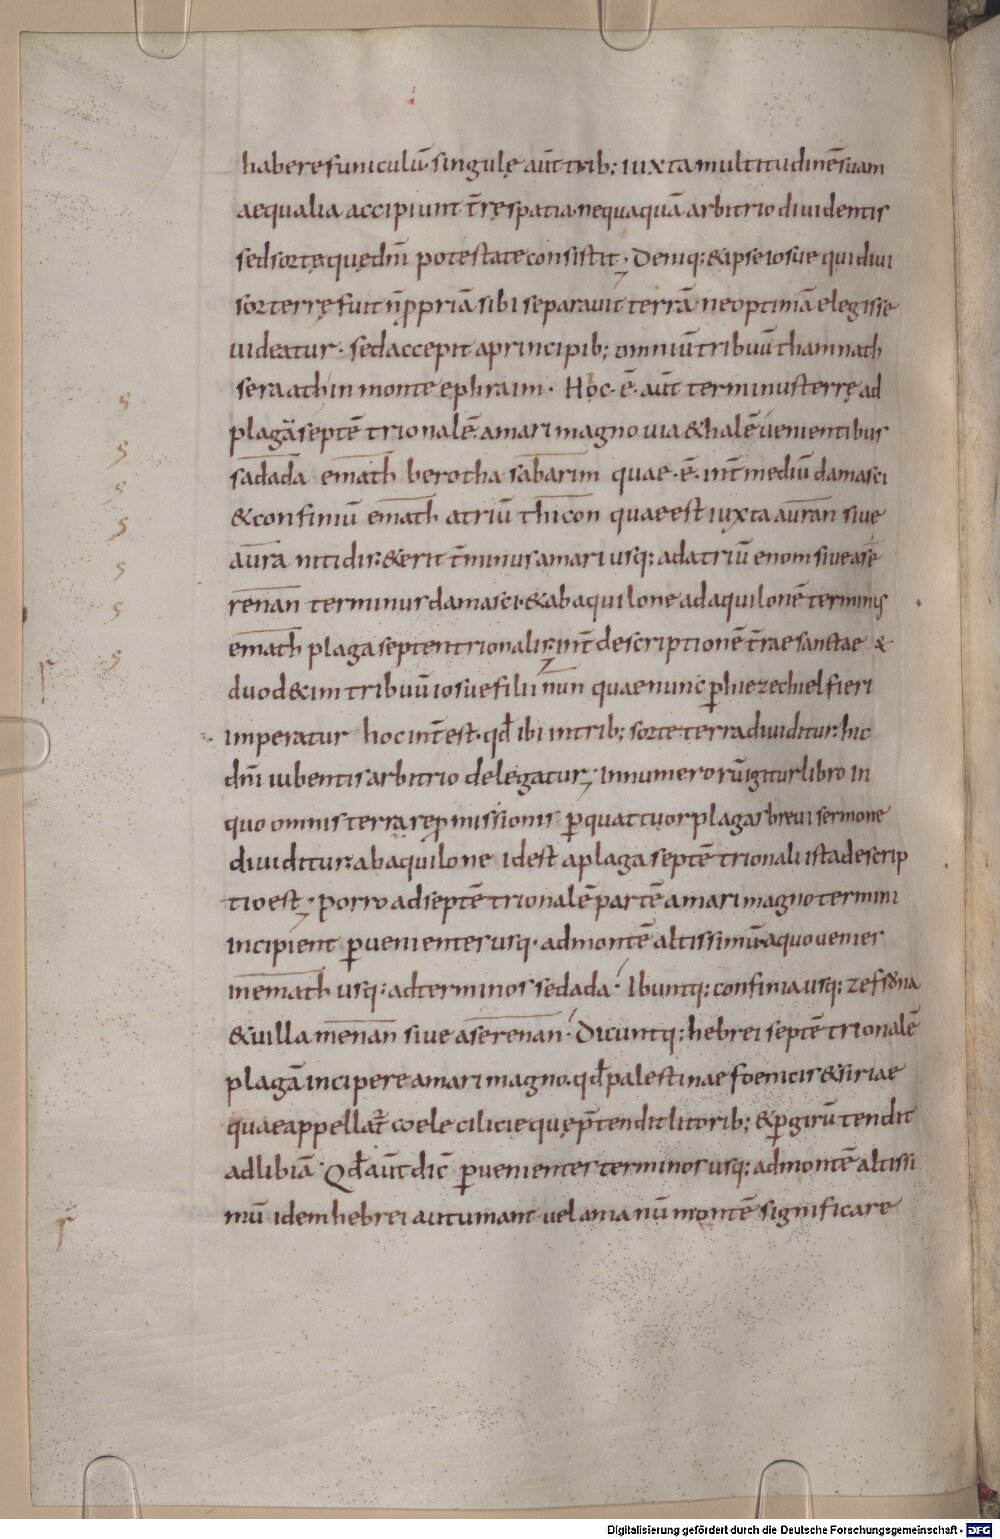 habere funiculū· singulę aūt trib; iuxta multitudinē suam
aequalia accipiunt t̄rę spatia· nequaquā arbitrio dividentis
sed sortę quę dn̄i potestate consistit; Deniq: & ipse iosue qui divi
sor terrę fuit n̄ ꝓpriā sibi separavit terrā ne optimā elegisse
videatur· sed accepit a principib; omniū tribuū thamnath
seraath in monte ephraim· Hoc·ē· aūt terminus terrę ad
plagā septētrionalē· a mari magno via & halē venientibus
sadada emath berotha sabarim quae·ē· int̄ mediū damasci
& confiniū emath atriū thicon quae est iuxta auran sive
aura nitidis· & erit t̄minus a mari usq: ad atriū enom sive ase
renan terminus damasci· & ab aquilone ad aquilonē terminis
emath plaga septentrionalis· int̄ descriptionē t̄rae sanctae &
duod&im tribuū iosue filii nun quae nunc ꝑ hiezechiel fieri
imperatur hoc int̄est· qd̄ ibi in trib; sorte terra dividitur· hic
dn̄i iubentis arbitrio delegatur; in numerorū igitur libro in
quo omnis terra repromissionis ꝑ quattuor plagas brevi sermone
dividitur· ab aquilone id est a plaga septētrionali ista descrip
tio est; Porro ad septētrionalē partē a mari magno termini
incipient ꝑvenientes usq· ad montē altissimū· a quo venies
in emath usq: ad terminos sedada· Ibuntq: confinia usq: zefrona
& villa menan sive aserenan· Dicuntq: hebrei septētrionalē
plagā incipere a mari magno· qd̄ palestinae foenicis & siriae
quae appellat̄ coele cilicieque p̄tendit litorib; & ꝑ girū tendit
ad libiā· Qd̄ aūt dic̄ ꝑvenientes terminos usq: ad montē altissi
mū idem hebrei autumant vel amanū montē significare
Digitalisierung gefördert durch die Deutsche Forschungsgemeinschaft - DFG